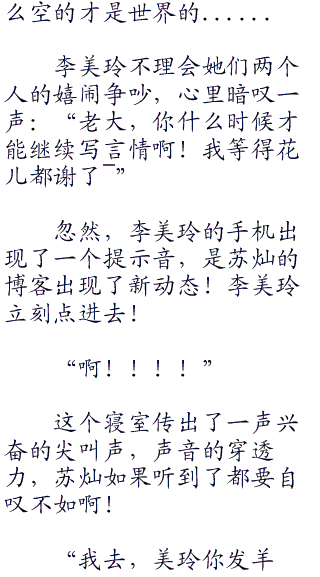 么空的才是世界的......
李美玲不理会她们两个
人的嬉闹争吵，心里暗叹一
声：“老大，你什么时候才
能继续写言情啊！我等得花
儿都谢了¯”
忽然，李美玲的手机出
现了一个提示音，是苏灿的
博客出现了新动态！李美玲
立刻点进去！
“啊！！！！”
这个寝室传出了一声兴
奋的尖叫声，声音的穿透
力，苏灿如果听到了都要自
叹不如啊！
“我去，美玲你发羊